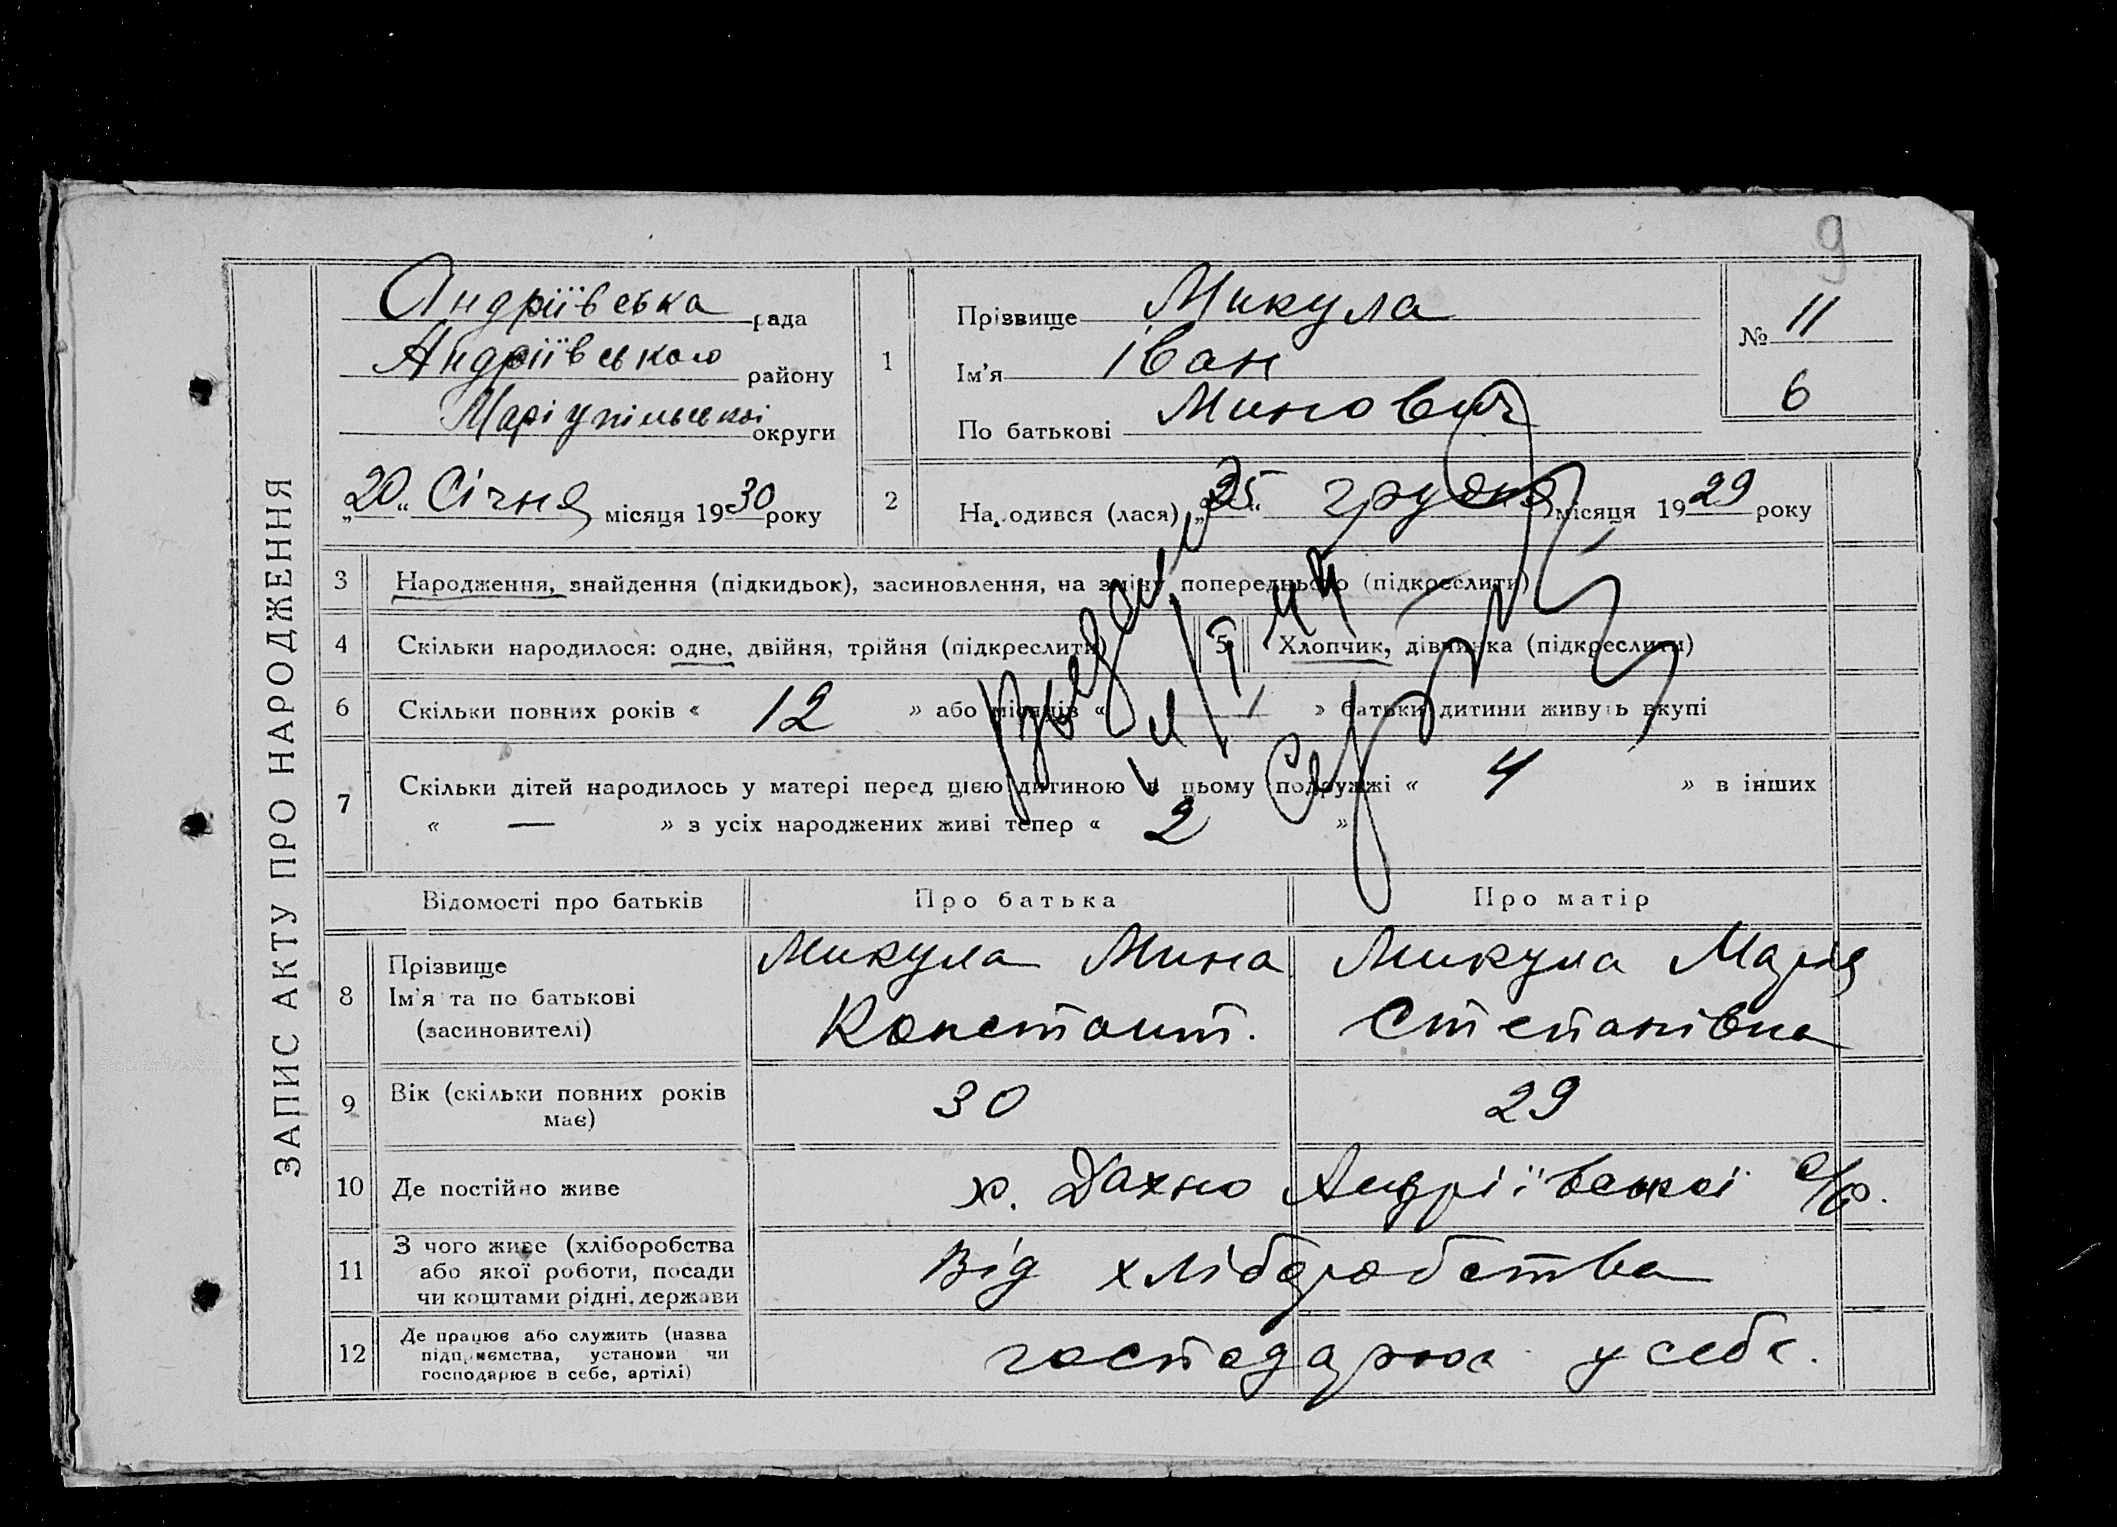 9
ЗАПИС АКТУ ПРО НАРОДЖЕННЯ
Андріївська рада
Андріївського району
Маріупільської округи
„20“ Січня місяця 1930 року
1
Прізвище Микула
Ім’я Іван
По батькові Минович
№ 11
6
2
Народився (лася) „25“ грудня місяця 1929 року
3 Народження, знайдення (підкидьок), засиновлення, на зміну попереднього (підкреслити)
4 Скільки народилося: одне, двійня, трійня (підкреслити)
5 Хлопчик, дівчинка (підкреслити)
6 Скільки повних років « 12 » або місяців « — » батьки дитини живуть вкупі
7 Скільки дітей народилось у матері перед цією дитиною в цьому подружжі « 4 » в інших
« — » з усіх народжених живі тепер « 2 »
Відомості про батьків
Про батька
Про матір
8 Прізвище
Ім’я та по батькові
(засиновителі)
Микула Мина
Констант.
Микула Марія
Степанівна
9 Вік (скільки повних років
має)
30
29
10 Де постійно живе
х. Дахно Андріївської с/р.
11 З чого живе (хліборобства
або якої роботи, посади
чи коштами рідні, держави
Від хліборобства
12 Де працює або служить (назва
підприємства, установи чи
господарює в себе, артілі)
господарює у себе.